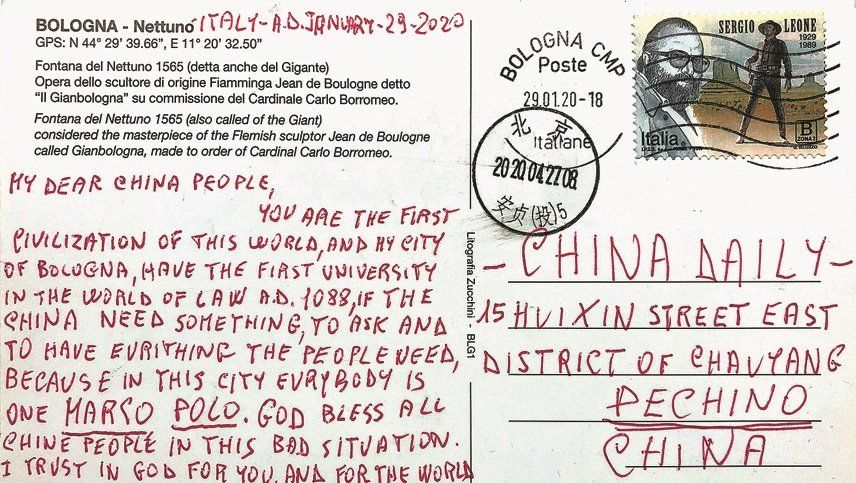 BOLOGNA - Nettuno ITALY - A.D. JANUARY - 29 - 2020
GPS: N 44° 29' 39.66", E 11° 20' 32.50"
Fontana del Nettuno 1565 (detta anche del Gigante)
Opera dello scultore di origine Fiamminga Jean de Boulogne detto
"Il Gianbologna" su commissione del Cardinale Carlo Borromeo.
Fontana del Nettuno 1565 (also called of the Giant)
considered the masterpiece of the Flemish sculptor Jean de Boulogne
called Gianbologna, made to order of Cardinal Carlo Borromeo.
MY DEAR CHINA PEOPLE,
YOU ARE THE FIRST
CIVILIZATION OF THIS WORLD, AND MY CITY
OF BOLOGNA, HAVE THE FIRST UNIVERSITY
IN THE WORLD OF LAW A.D. 1088, IF THE
CHINA NEED SOMETHING, TO ASK AND
TO HAVE EVRITHING THE PEOPLE NEED,
BECAUSE IN THIS CITY EVRYBODY IS
ONE MARCO POLO. GOD BLESS ALL
CHINE PEOPLE IN THIS BAD SITUATION.
I TRUST IN GOD FOR YOU, AND FOR THE WORLD
Litografia Zucchini - BLG1
BOLOGNA CMP
Poste
29.01.20-18
Italiane
北京
2020 04 27 08
安贞(投)5
SERGIO LEONE
1929
1989
Italia
B
ZONA 1
- CHINA DAILY -
15 HUIXIN STREET EAST
DISTRICT OF CHAUYANG
PECHINO
CHINA